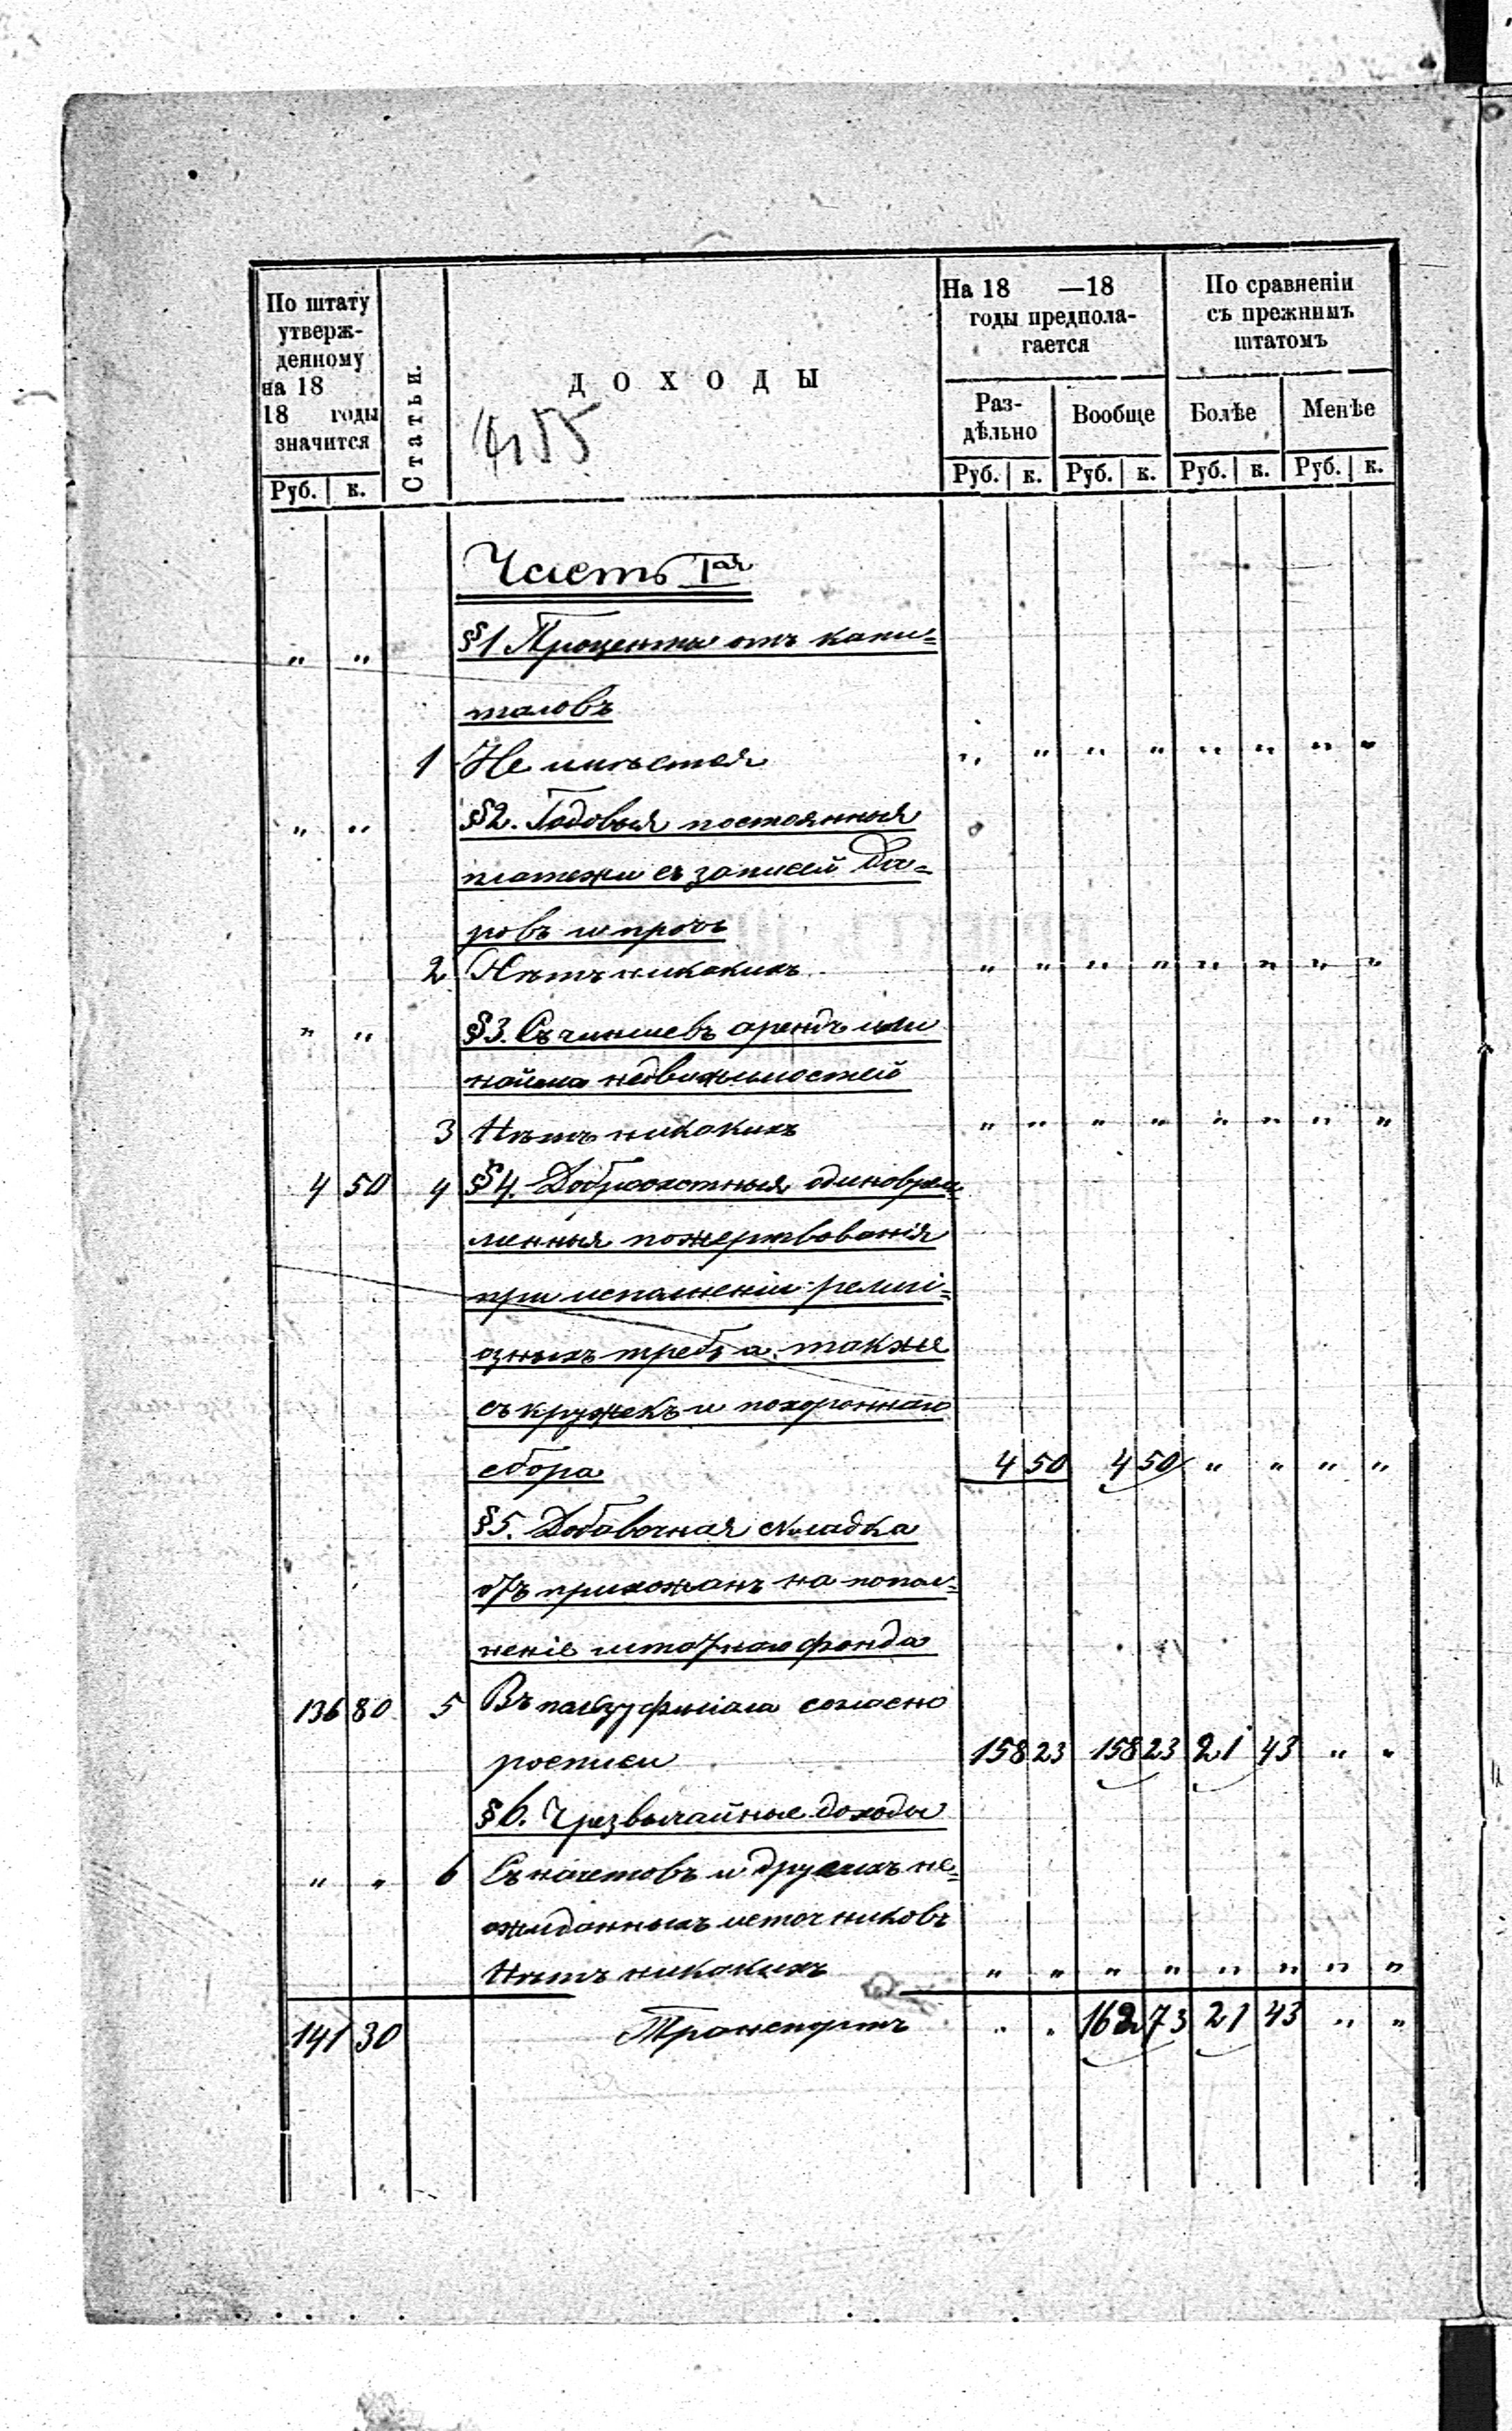 По штату
утверж-
денному
на 18
18 годы
значится
Руб. к.
Статьи.
ДОХОДЫ
На 18 —18
годы предпола-
гается
Раз-
дѣльно
Вообще
Руб. к. Руб. к.
По сравненіи
съ прежнимъ
штатомъ
Болѣе Менѣе
Руб. к. Руб. к.
Часть Iая
„ „ §1 Проценты отъ капи=
таловъ
1 Не имѣется „ „ „ „ „ „ „ „
„ „ §2. Годовыя постоянныя
платежи съ записей да=
ровъ и проч
2 Нѣтъ никакихъ „ „ „ „ „ „ „ „
„ „ §3. Съ чиншевъ арендъ или
найма недвижимостей
3 Нѣтъ никакихъ „ „ „ „ „ „ „ „
4 50 4 §4. Доброохотныя одновре=
менныя пожертвованія
при исполненіи религі=
озныхъ требъ а также
съ кружекъ и похороннаго
сбора 4 50 4 50 „ „ „ „
§5. Добавочная складка
отъ прихожанъ на попол=
неніе штатнаго фонда
136 80 5 Въ пользу филіала согласно
росписи 158 23 158 23 21 43 „ „
§6. Чрезвычайные доходы
„ „ 6 Съ начетовъ и другихъ не=
ожиданныхъ источниковъ
Нѣтъ никакихъ „ „ „ „ „ „ „ „
141 30 Транспортъ „ „ 162 73 21 43 „ „